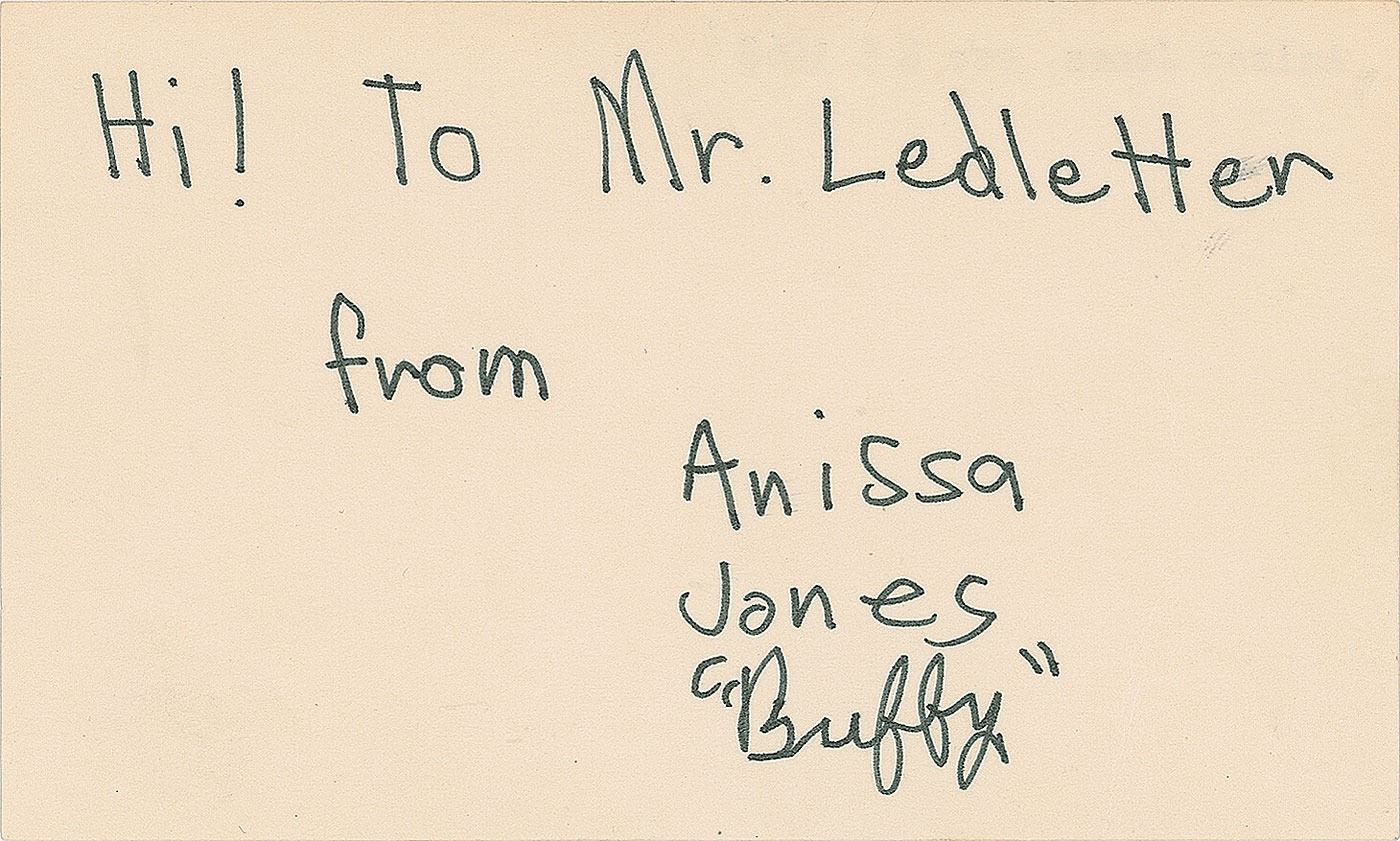 Hi! To Mr. Ledletter
from
Anissa
Jones
"Buffy"